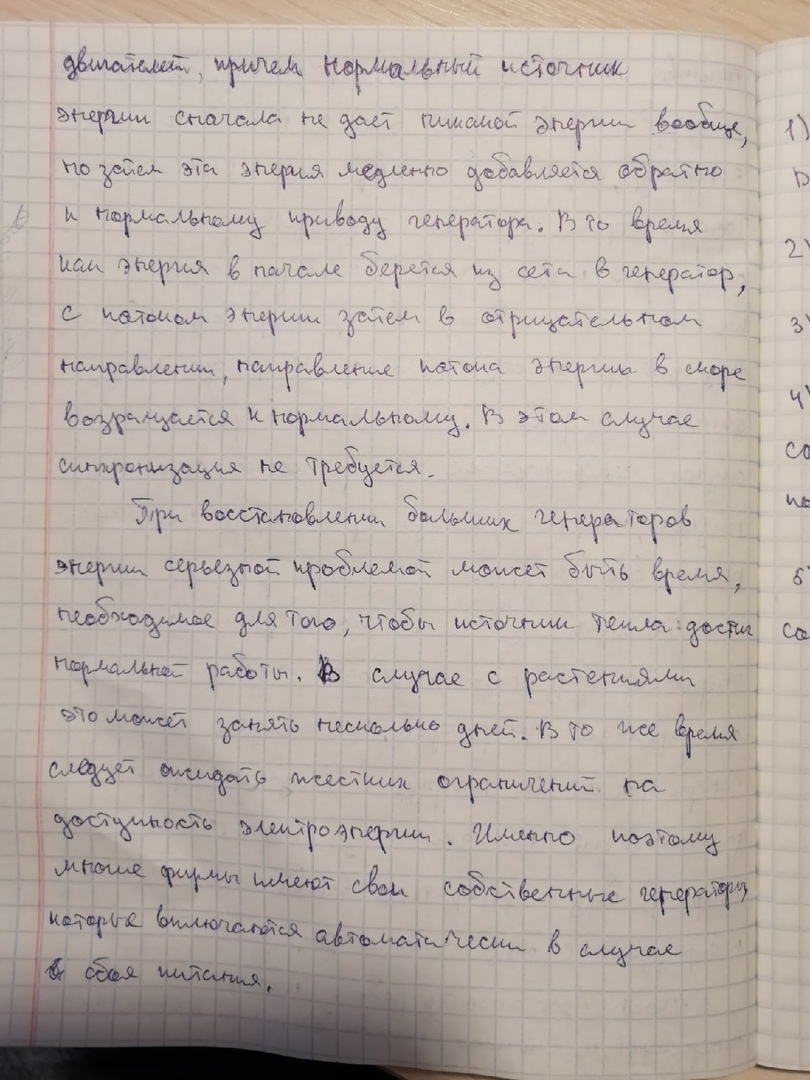 двигателей, причем нормальный источник
энергии сначала не дает никакой энергии вообще,
но затем эта энергия медленно добавляется обратно
к нормальному приводу генератора. В то время
как энергия в начале берется из сета в генератор,
с потоком энергии затем в отрицательном
направлении, направление потока энергии в скоре
возращается к нормальному. В этом случае
синхронизация не требуется.
При восстановлении больших генераторов
энергии серьезной проблемой может быть время,
необходимое для того, чтобы источник тепла достиг
нормальной работы. В случае с растениями
это может занять несколько дней. В то же время
следует ожидать жестких ограничений на
доступность электроэнергии. Именно поэтому
многие фирмы имеют свои собственные генераторы,
которые включаются автоматически в случае
сбоя питания.
1)
2)
3)
4)
со
по
5)
со